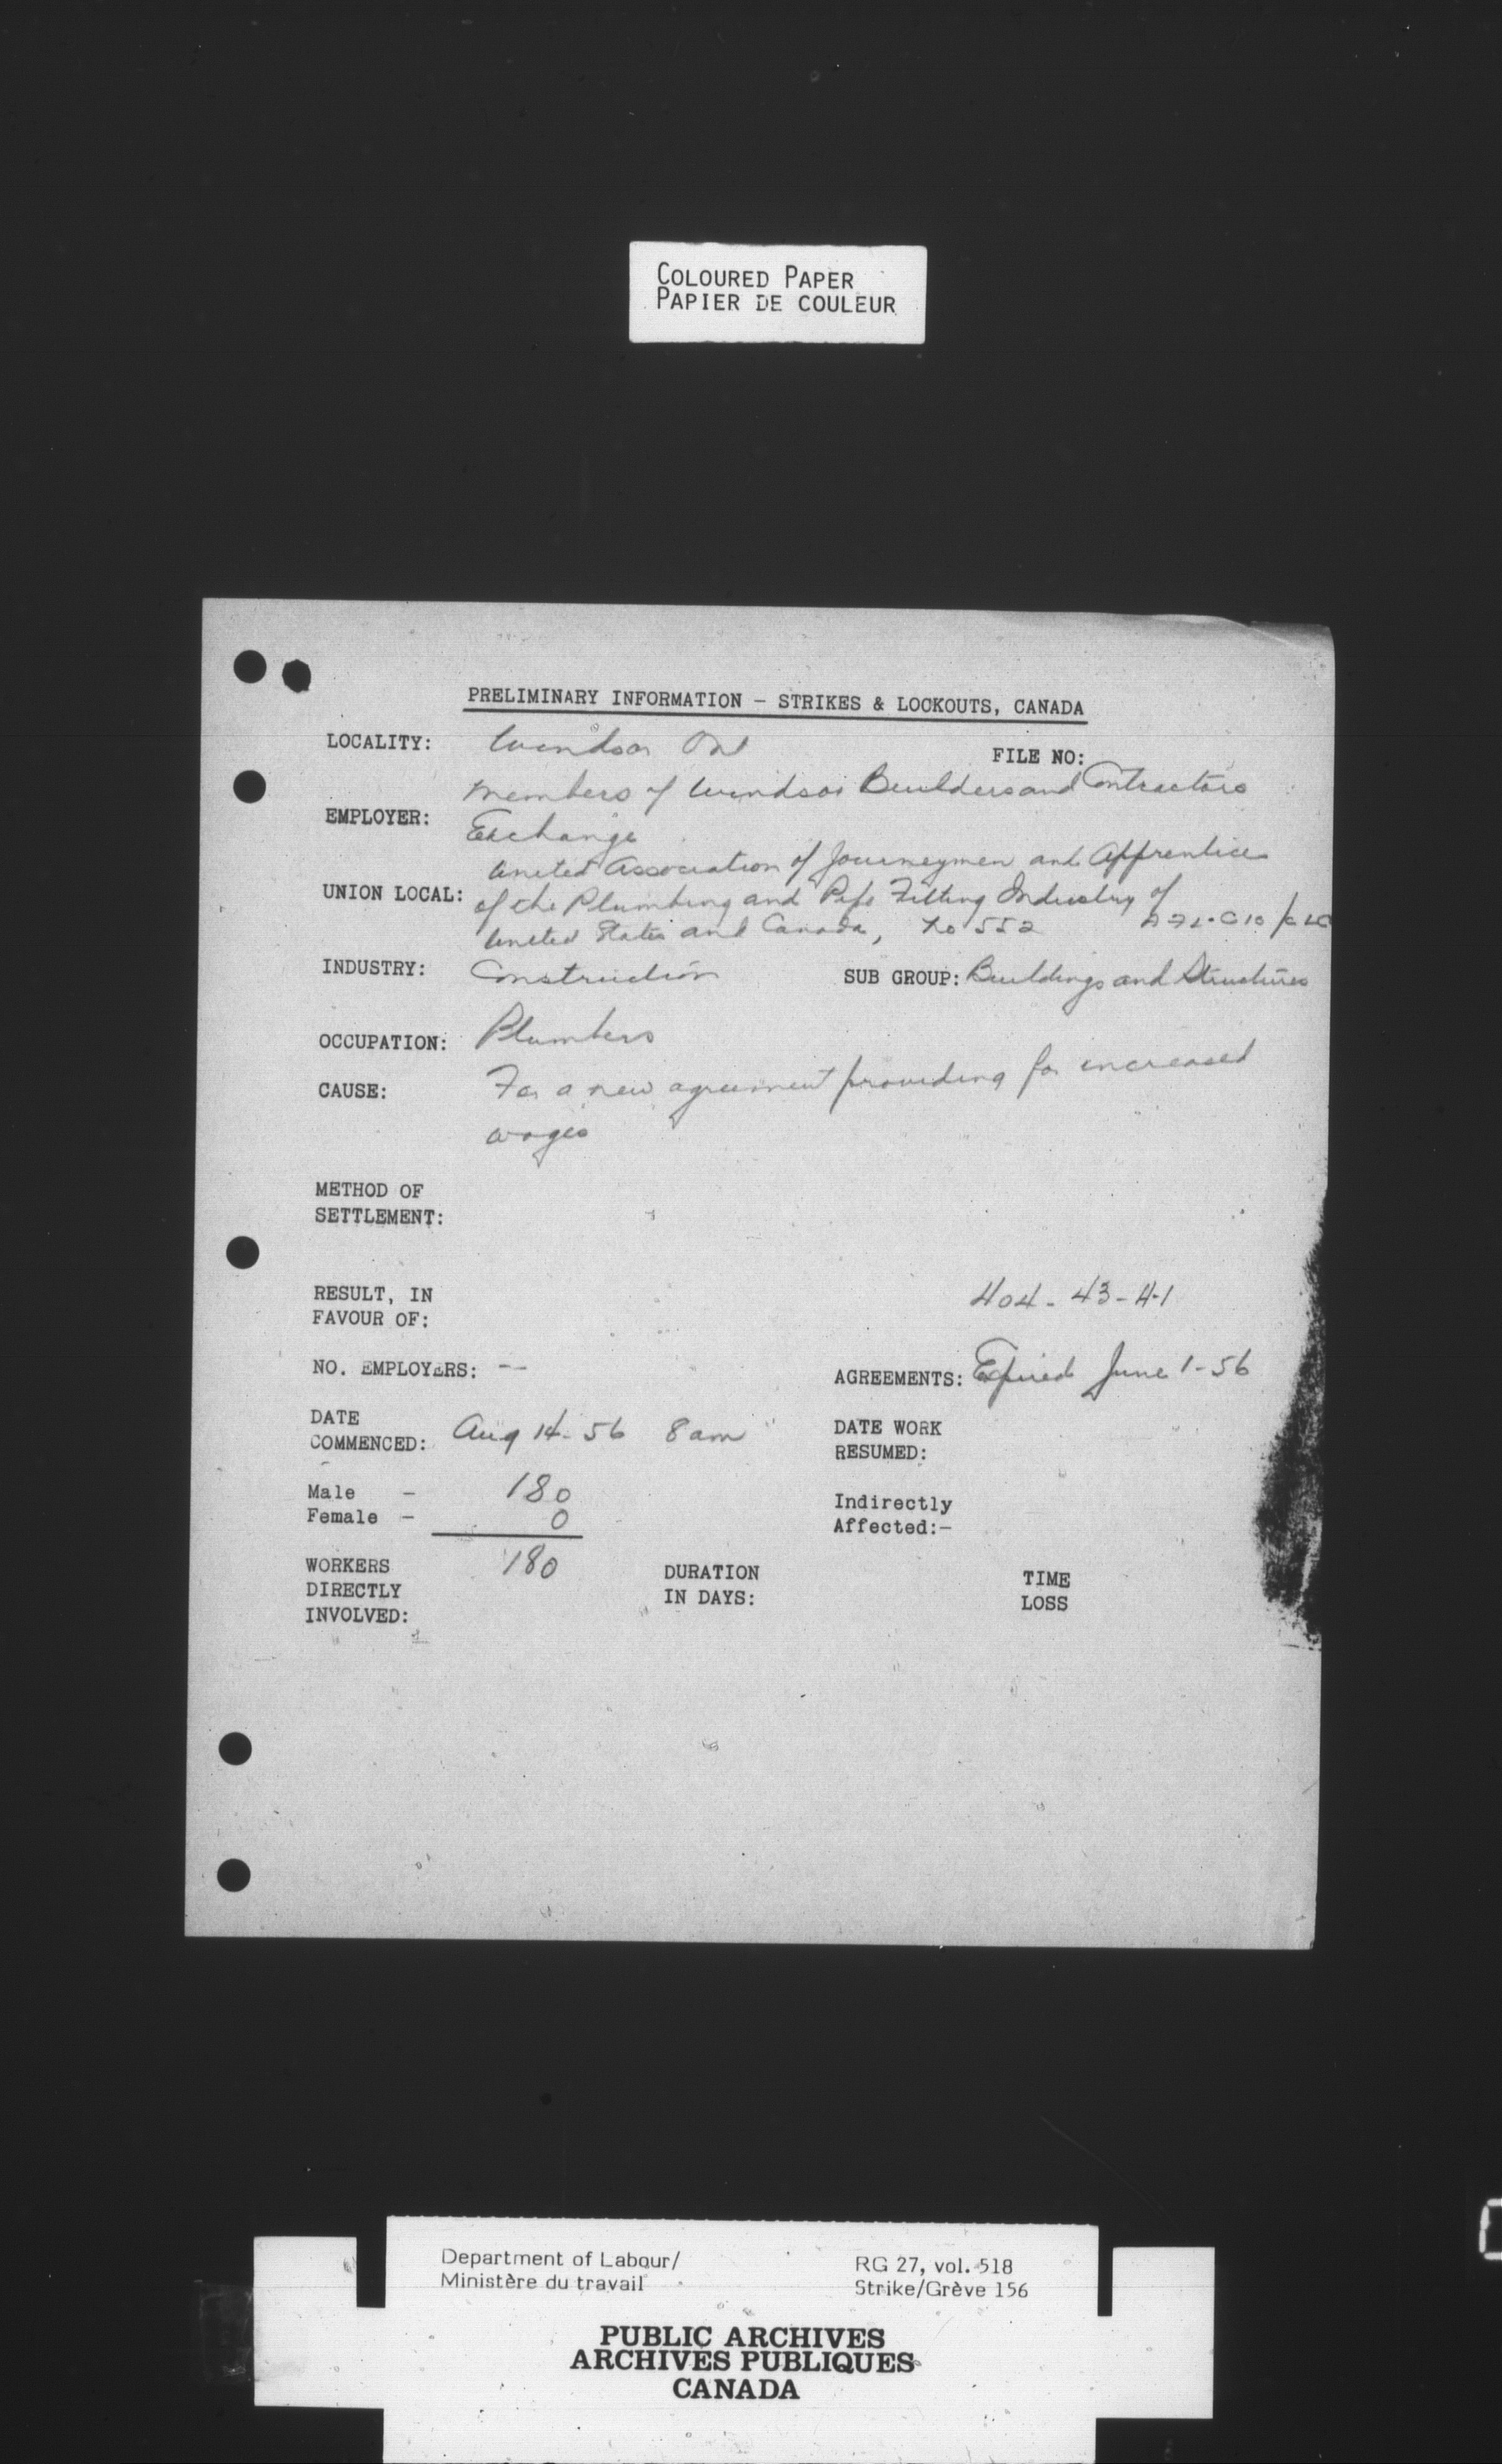 COLOURED PAPER
PAPIER DE COULEUR
PRELIMINARY INFORMATION - STRIKES & LOCKOUTS, CANADA
LOCALITY: Windsor Ont
FILE NO:
Members of Windsor Builders and Contractors
EMPLOYER: Exchange
United Association of Journeymen and Apprentices
UNION LOCAL: of the Plumbing and Pipe Fitting Industry of
United States and Canada, No 552 AFL-CIO/CLC
INDUSTRY: Construction SUB GROUP: Buildings and Structures
OCCUPATION: Plumbers
CAUSE: For a new agreement providing for increased
wages
METHOD OF
SETTLEMENT:
RESULT, IN
FAVOUR OF:
404-43-4-1
NO. EMPLOYERS: --
AGREEMENTS: Expired June 1-56
DATE
COMMENCED: Aug 14-56 8 am
DATE WORK
RESUMED:
Male - 180
Female - 0
Indirectly
Affected:-
WORKERS
DIRECTLY
INVOLVED: 180
DURATION
IN DAYS:
TIME
LOSS
Department of Labour/
Ministère du travail
RG 27, vol. 518
Strike/Grève 156
PUBLIC ARCHIVES
ARCHIVES PUBLIQUES
CANADA